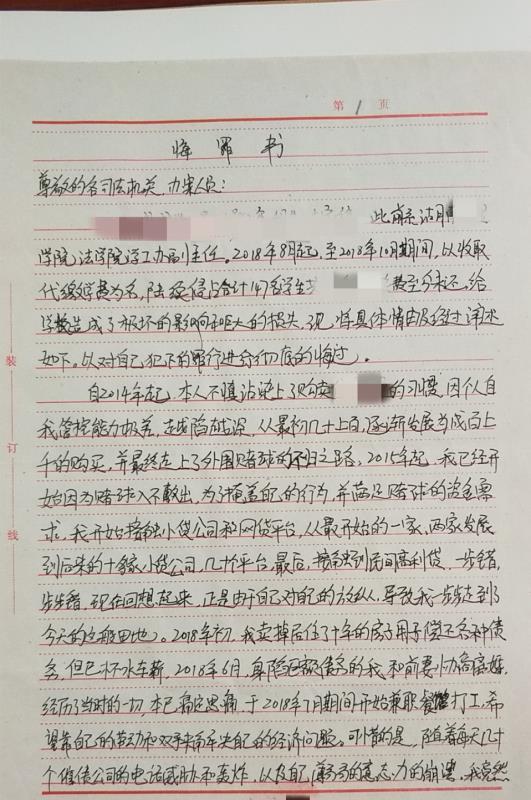 第 1 页
悔罪书
尊敬的各司法机关、办案人员：
此前系沽月
学院法学院学工办副主任。2018年8月起，至2018年10月期间，以收取
代缴学费为名，陆续侵占合计147名学生 费至今未还，给
学校造成了极坏的影响和巨大的损失，现将具体情由及经过详述
如下。以对自己犯下的罪行进行彻底的悔过。
自2014年起，本人不慎沾染上了购买 的习惯，因个人自
我管控能力极差，越陷越深，从最初几十上百，逐渐发展当成百上
千的购买，并最终走上了外围赌球的不归之路。2015年起，我已经开
始因为赌球入不敷出，为了掩盖自己的行为，并满足赌球的资金需
求，我开始接触小贷公司和网贷平台，从最开始的一家、两家发展
到后来的十多家小贷公司，几十个平台，最后，接触到民间高利贷，一步错，
步步错，现在回想起来，正是由于自己对自己的放纵，导致我一步步走到了
今天的这般田地。2018年初，我卖掉居住了十年的房子用于偿还各种债
务，但已杯水车薪，2018年6月，身陷巨额债务的我，和前妻协商离婚，
经历了当时的一切，本已痛定思痛，于2018年7月期间开始兼职 打工，希
望靠自己的劳动和双手来解决自己的经济问题。可惜的是，随着每天几十
个催债公司的电话威胁和轰炸，以及自 的意志力的崩溃，我竟然
裝
订
线